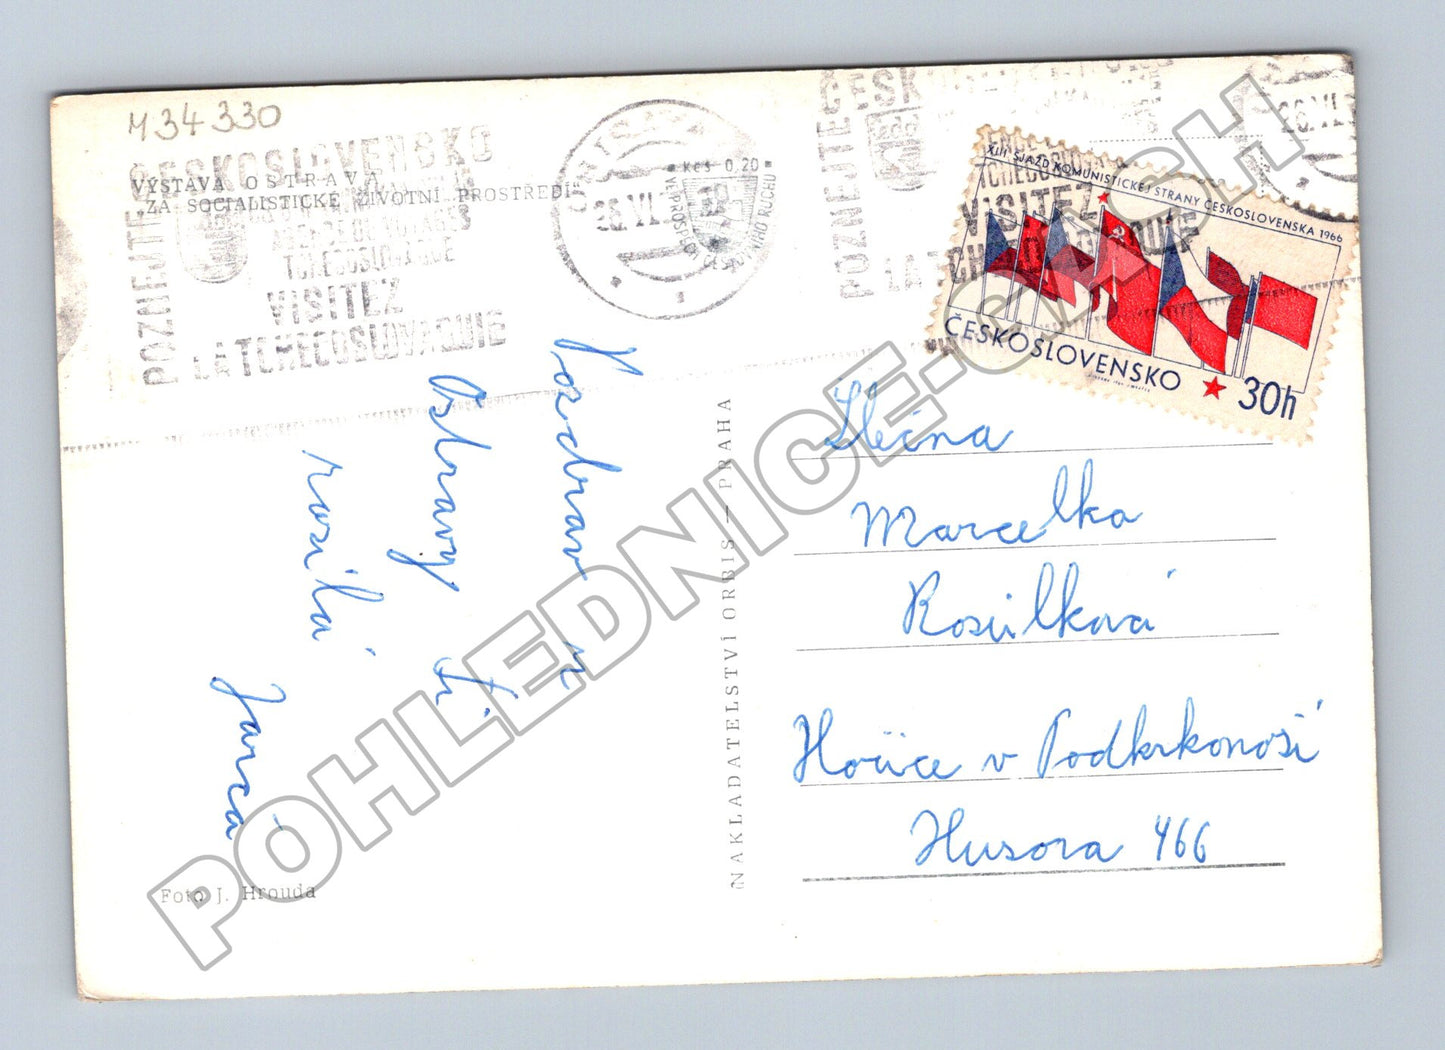 M34330
VÝSTAVA OSTRAVA
„ZA SOCIALISTICKÉ ŽIVOTNÍ PROSTŘEDÍ“
POZNEJTE ČESKOSLOVENSKO
VISITEZ
LA TCHECOSLOVAQUIE
Kčs 0,20
POZNEJTE ČESKOSLOVENSKO
VISITEZ
LA TCHECOSLOVAQUIE
XIII. SJAZD KOMUNISTICKEJ STRANY ČESKOSLOVENSKA 1966
ČESKOSLOVENSKO 30h
Pozdrav z
Ostravy Ti
posílá
Jarča
NAKLADATELSTVÍ ORBIS — PRAHA
Slečna
Marcelka
Rosůlková
Hořice v Podkrkonoší
Husova 466
Foto J. Hrouda
POHLEDNICE.CZ